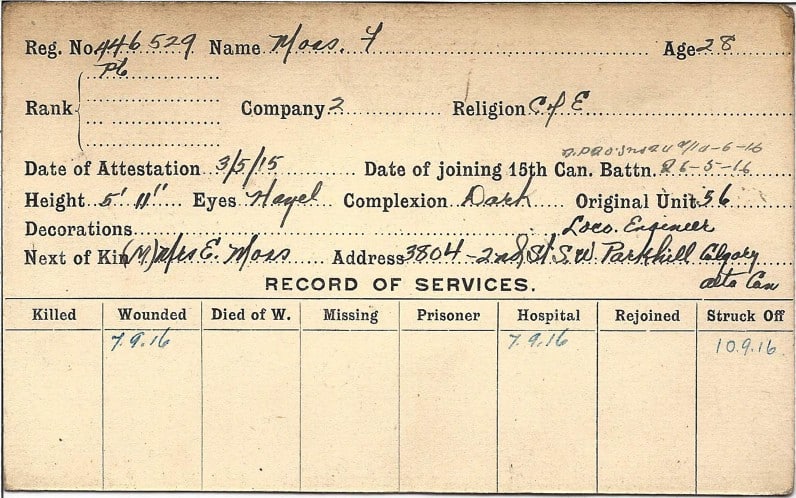 Reg. No. 446529 Name Moss. F Age 28
Pte
Rank Company 2 Religion C of E
11-6-16
Date of Attestation 3/5/15 Date of joining 15th Can. Battn. 26-5-16
Height 5' 11" Eyes Hazel Complexion Dark Original Unit 56
Decorations Loco. Engineer
Next of Kin (M) Mrs E. Moss Address 3804 - 2nd St S.W. Parkhill Calgary
Alta Can
RECORD OF SERVICES.
Killed Wounded Died of W. Missing Prisoner Hospital Rejoined Struck Off
7.9.16 7.9.16 10.9.16